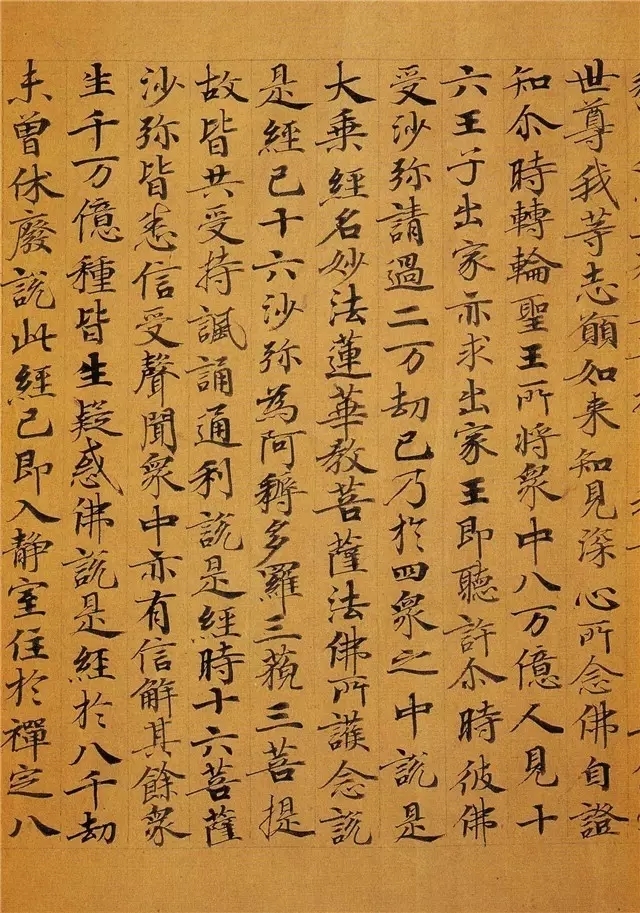 世尊我等志願如来知見深心所念佛自證
知尒時轉輪聖王所將衆中八万億人見十
六王子出家亦求出家王即聽許尒時彼佛
受沙弥請過二万劫已乃於四衆之中說是
大乗經名妙法蓮華教菩薩法佛所護念說
是經已十六沙弥為阿耨多羅三藐三菩提
故皆共受持諷誦通利說是經時十六菩薩
沙弥皆悉信受聲聞衆中亦有信解其餘衆
生千万億種皆生疑惑佛說是經於八千劫
未曾休廢說此經已即入静室住於禪定八